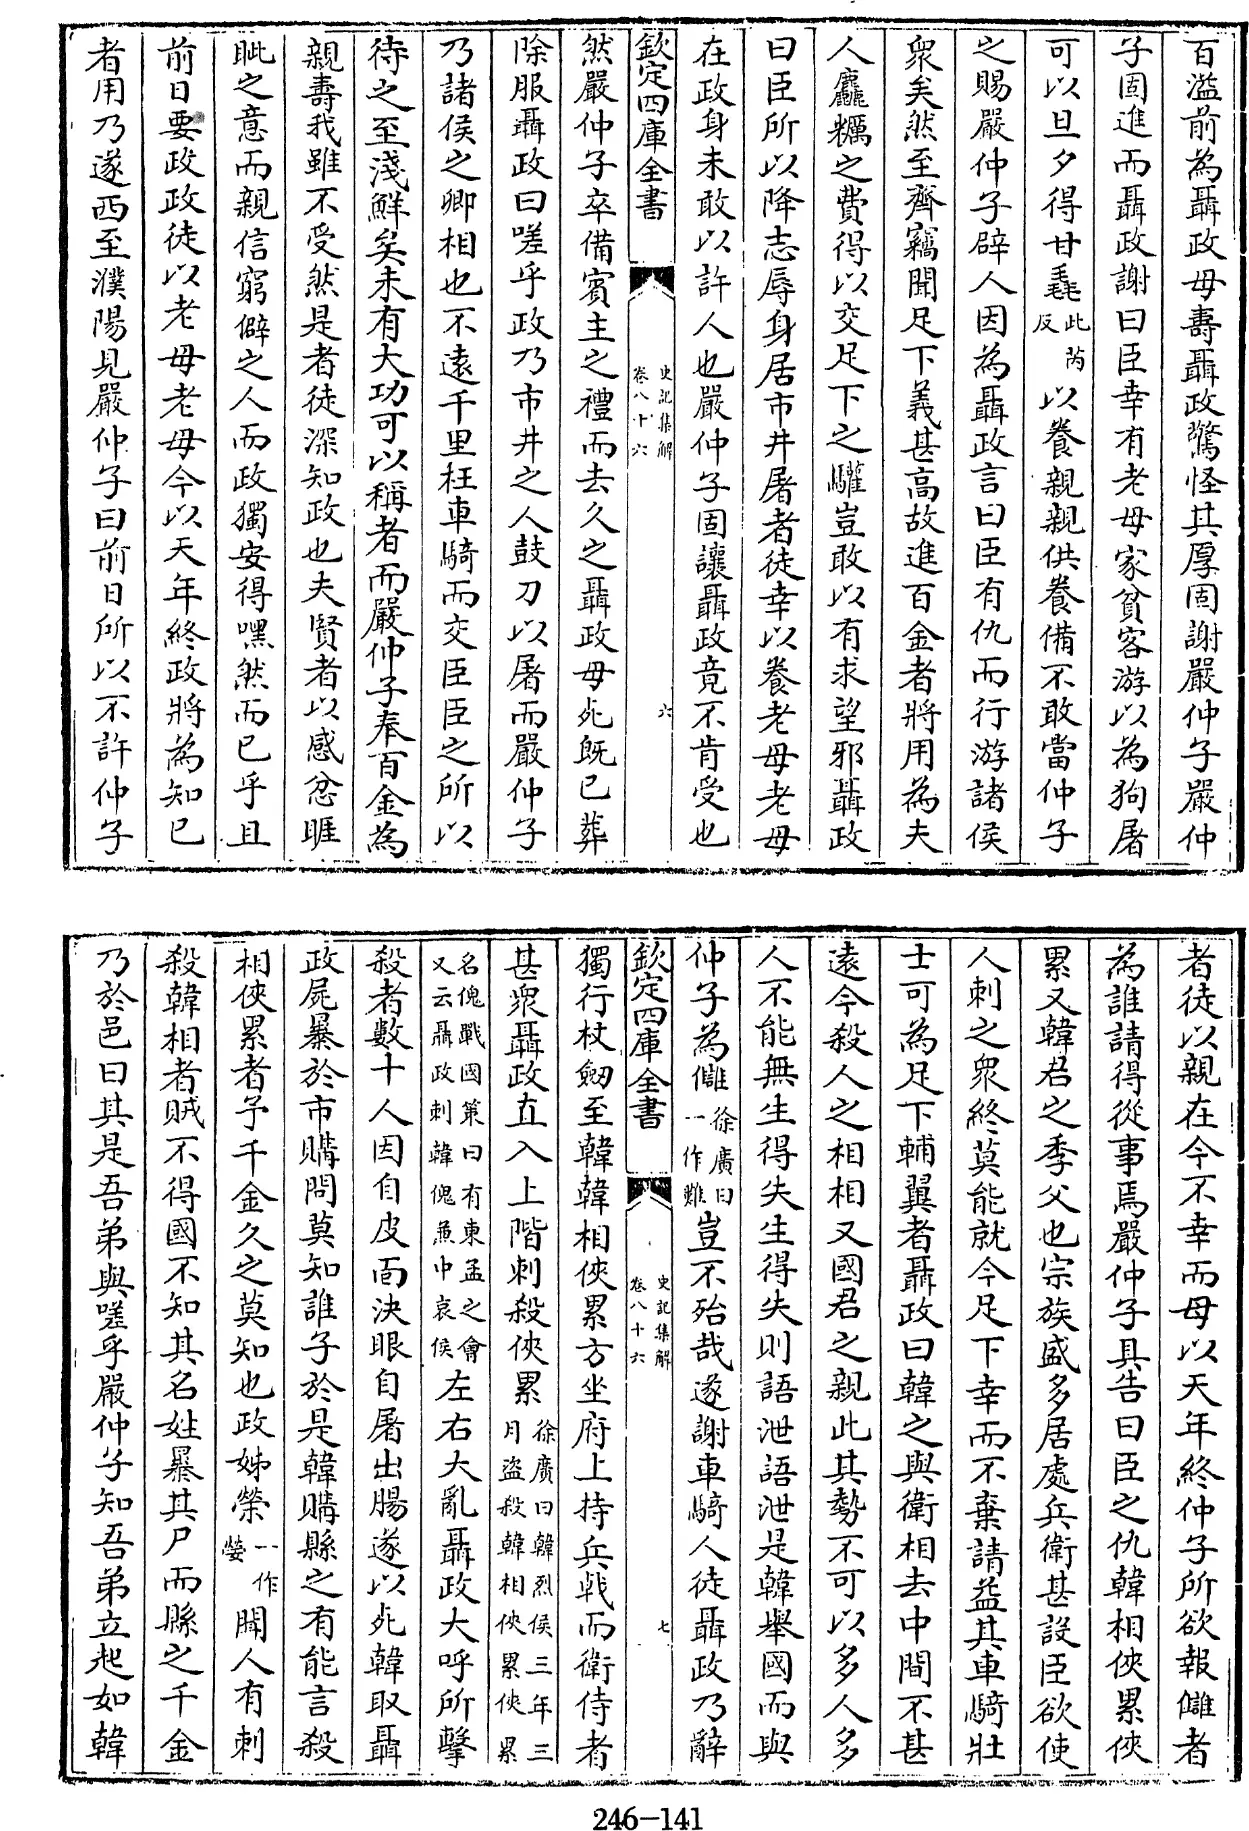 百溢前為聶政母壽聶政驚怪其厚固謝嚴仲子嚴仲
子固進而聶政謝曰臣幸有老母家貧客游以為狗屠
可以旦夕得甘毳此芮反以養親親供養備不敢當仲子
之賜嚴仲子辟人因為聶政言曰臣有仇而行游諸侯
衆矣然至齊竊聞足下義甚高故進百金者將用為夫
人麤糲之費得以交足下之驩豈敢以有求望邪聶政
曰臣所以降志辱身居市井屠者徒幸以養老母老母
在政身未敢以許人也嚴仲子固讓聶政竟不肯受也
欽定四庫全書 史記集解 卷八十六 六
然嚴仲子卒備賓主之禮而去久之聶政母死既已葬
除服聶政曰嗟乎政乃市井之人鼓刀以屠而嚴仲子
乃諸侯之卿相也不遠千里枉車騎而交臣臣之所以
待之至淺鮮矣未有大功可以稱者而嚴仲子奉百金為
親壽我雖不受然是者徒深知政也夫賢者以感忿睚
眦之意而親信窮僻之人而政獨安得嘿然而已乎且
前日要政政徒以老母老母今以天年終政將為知已
者用乃遂西至濮陽見嚴仲子曰前日所以不許仲子
者徒以親在今不幸而母以天年終仲子所欲報讎者
為誰請得從事焉嚴仲子具告曰臣之仇韓相俠累俠
累又韓君之季父也宗族盛多居處兵衛甚設臣欲使
人刺之衆終莫能就今足下幸而不棄請益其車騎壯
士可為足下輔翼者聶政曰韓之與衛相去中間不甚
遠今殺人之相相又國君之親此其勢不可以多人多
人不能無生得失生得失則語泄語泄是韓舉國而與
仲子為讎徐廣曰一作難豈不殆哉遂謝車騎人徒聶政乃辭
欽定四庫全書 史記集解 卷八十六 七
獨行杖劒至韓韓相俠累方坐府上持兵戟而衛侍者
甚衆聶政直入上階刺殺俠累徐廣曰韓烈侯三年三月盜殺韓相俠累俠累
名傀戰國策曰有東孟之會又云聶政刺韓傀兼中哀侯左右大亂聶政大呼所擊
殺者數十人因自皮面決眼自屠出腸遂以死韓取聶
政屍暴於市購問莫知誰子於是韓購縣之有能言殺
相俠累者予千金久之莫知也政姊榮一作嫈聞人有刺
殺韓相者賊不得國不知其名姓暴其尸而縣之千金
乃於邑曰其是吾弟與嗟乎嚴仲子知吾弟立起如韓
246-141